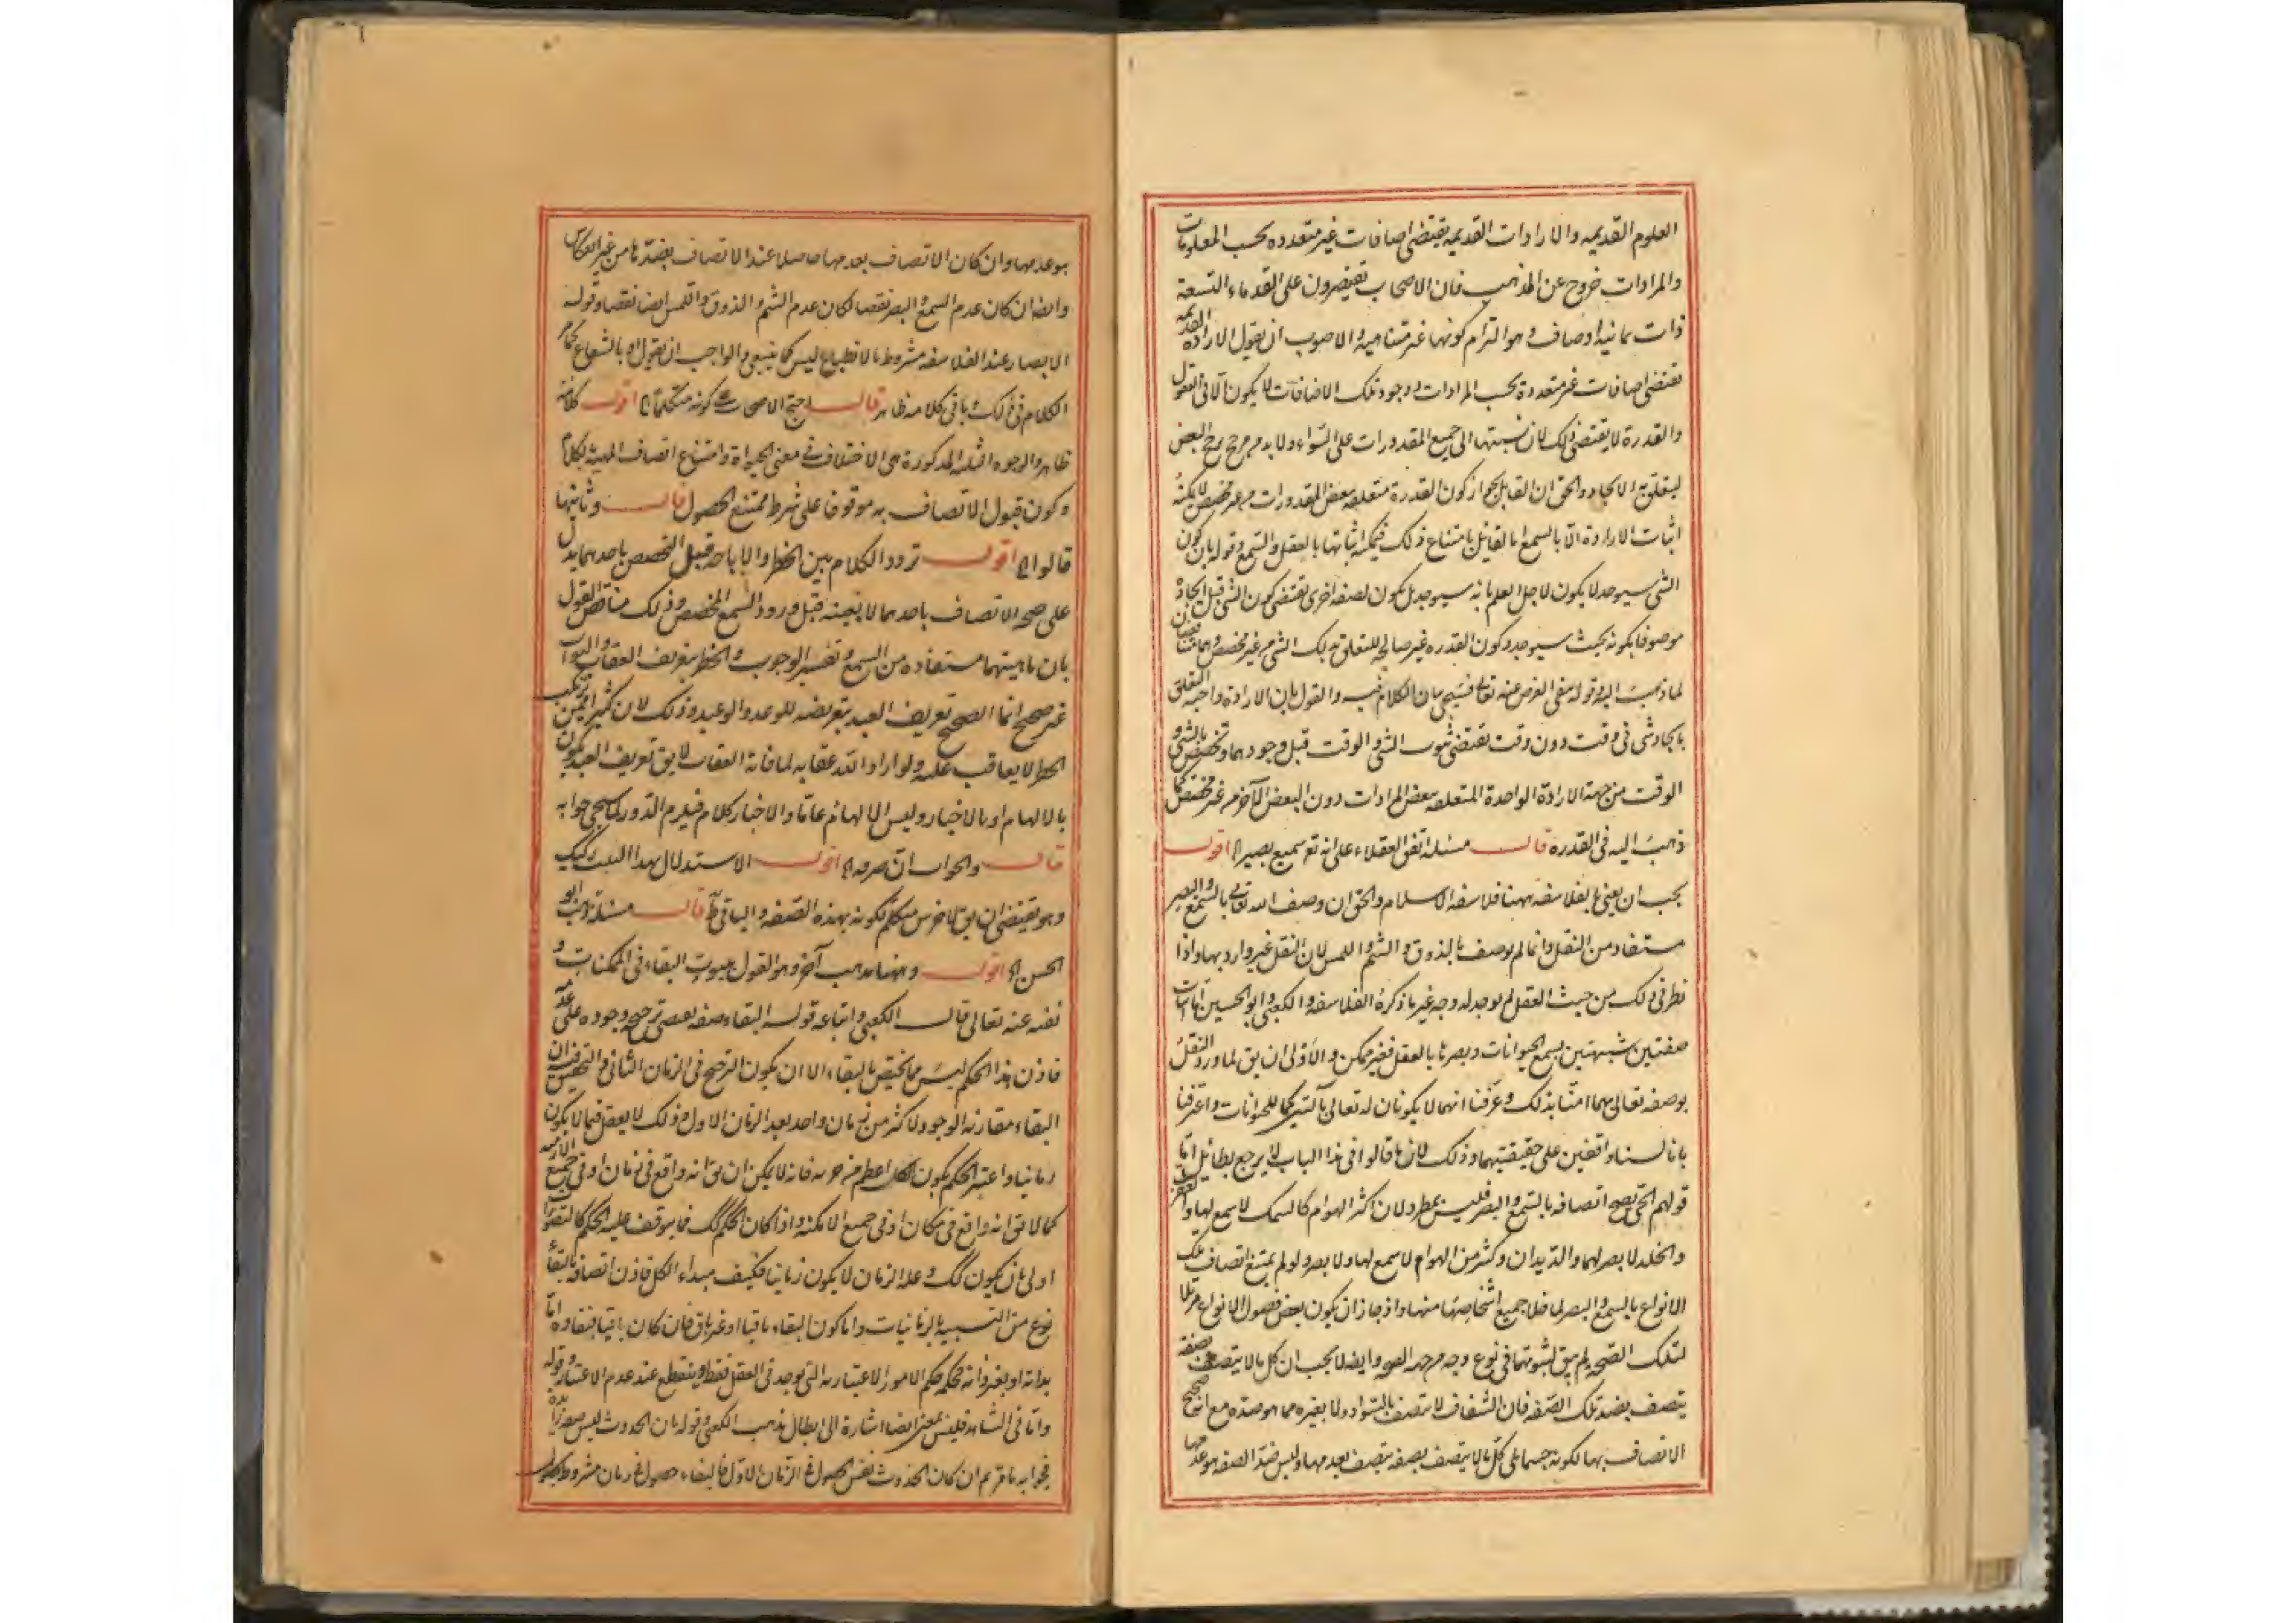 العلوم القديمه والارادات القديمه يقتضى اضافات غير متعدده بحسب المعلومات
والمرادات خروج عن المذهب فان الاصحاب يقتصرون على القدماء التسعة
ذات ثمانية اوصاف وهو التزام كونها غير متناهية والاصوب ان يقول الارادة القديمه
تقتضى اضافات غير متعددة بحسب المرادات ووجود تلك الاضافات لا يكون الا فى العقول
والقدرة لا يقتضى ذلك لان نسبتها الى جميع المقدورات على السواء ولا بد من مرجح يرجح البعض
ليتعلق به الايجاد والحق ان القايل بجواز كون القدرة متعلقه ببعض المقدورات من غير مخصص لا يمكنه
اثبات الارادة الا بالسمع اما القائل بامتناع ذلك فيمكنه اثباتها بالعقل والسمع وقوله بان كون
الشى سيوجد لا يكون لاجل العلم بانه سيوجد بل يكون لصفة اخرى تقتضى كون الشى قبل ايجاده
موصوفا بكونه بحيث سيوجد وكون القدره غير صالحة للتعلق بذلك الشى من غير مخصص وهما مناقضان
لما ذهب اليه وقوله بنفى الغرض عنه تعالى فسيجى بيان الكلام فيه والقول بان الارادة واجبه التعلق
بايجاد شى فى وقت دون وقت يقتضى ثبوت الشى والوقت قبل وجودهما وتخصيص الشى و
الوقت من جهة الارادة الواحدة المتعلقه ببعض المرادات دون البعض الآخر من غير مخصص كما
ذهب اليه فى القدره قال مسئله اتفق العقلاء على انه تع سميع بصير الخ اقول
يجب ان يعنى بالفلاسفه ههنا فلاسفه الاسلام والحق ان وصف الله تعالى بالسمع والبصر
مستفاد من النقل وانما لم يوصف بالذوق والشم واللمس لان النقل غير وارد بها واذا
نظر فى ذلك من حيث العقل لم يوجد له وجه غير ما ذكره الفلاسفه والكعبى وابو الحسين اما اثبات
صفتين شبيهتين بسمع الحيوانات وبصرها بالعقل فغير ممكن والاولى ان يق لما ورد النقل
بوصفه تعالى بهما امنا بذلك وعرفنا انهما لا يكونان له تعالى بآلتين كما للحيوانات واعترفنا
بانا لسنا واقفين على حقيقتيهما وذلك لان ما قالوا فى هذا الباب لا يرجع بطائل اما
قولهم الحى يصح اتصافه بالسمع والبصر فليس بمطرد لان اكثر الهوام كالسمك لا سمع لها والعقرب
والخلد لا بصر لهما والديدان وكثير من الهوام لا سمع لها ولا بصر ولو لم يمتنع اتصاف تلك
الانواع بالسمع والبصر لما خلا جميع اشخاصها منها واذ جاز ان يكون بعض فصول الانواع مزيلا
لتلك الصحه لم يبق لثبوتها فى نوع وجه من جهة الصحه وايضا لا يجب ان كل ما لا يتصف بصفة
يتصف بضد تلك الصفه فان الشفاف لا يتصف بالسواد ولا بغيره مما هو ضده مع انه صحيح
الاتصاف بها لكونه جسما بلى كل ما لا يتصف بصفه يتصف بعدمها وليس ضد الصفه هو عدمها
هو عدمها وان كان الاتصاف بعدمها حاصلا عند الاتصاف بضدها من غير انعكاس
وايضا ان كان عدم السمع والبصر نقصا لكان عدم الشم والذوق واللمس ايضا نقصا وقوله
الابصار عند الفلاسفه مشروط بالانطباع ليس كما ينبغى والواجب ان يقول او بالشعاع كما مر
الكلام فى ذلك وباقى كلامه ظاهر قال احتج الاصحاب على كونه متكلما الخ اقول كلامه
ظاهر والوجوه الثلثه المذكورة هى الاختلاف فى معنى الحياة وامتناع اتصاف الماهية بالكلام
وكون قبول الاتصاف به موقوفا على شرط ممتنع الحصول قال وثانيها
قالوا الخ اقول تردد الكلام بين الحظر والاباحة قبل التخصص باحدهما يدل
على صحه الاتصاف باحدهما لا بعينه قبل ورود السمع المخصص وذلك مناقض للقول
بان ماهيتهما مستفاده من السمع وتفسير الوجوب والحظر بتعريف العقاب والثواب
غير صحيح انما الصحيح تعريف العبد بتعريضه للوعد والوعيد وذلك لان كثيرا ممن يرتكب
الحظر لا يعاقب عليه ولو اراد الله عقابه لما فاته العقاب لا يق تعريف العبد يكون
بالالهام او بالاخبار وليس الالهام عاما والاخبار كلام فيلزم الدور لما سيجى جوابه
قال والجواب ان صرفه الخ اقول الاستدلال بهذا البيت ركيك
وهو يقتضى ان يق للاخرس متكلم لكونه بهذه الصفه والباقى ظ قال مسئلة ذهب ابو
الحسن الخ اقول وههنا مذهب آخر وهو القول بثبوت البقاء فى الممكنات و
نفيه عنه تعالى قال الكعبى واتباعه قوله البقاء صفه يقتضى ترجيح وجوده على عدمه
فاذن هذا الحكم ليس مما يختص بالبقاء الا ان يكون الترجيح فى الزمان الثانى والتحقيق ان
البقاء مقارنه الوجود لاكثر من زمان واحد بعد الزمان الاول وذلك لا يعقل فيما لا يكون
زمانيا واعتبر الحكم بكون الكل اعظم من جزئه فانه لا يمكن ان يق انه واقع فى زمان او فى جميع الازمنه
كما لا يق انه واقع فى مكان او فى جميع الامكنه واذا كان الحكم كك فما يتوقف عليه الحكم كالتصورات
اولى بان يكون كك وعلة الزمان لا يكون زمانيا فكيف مبداء الكل فاذن اتصافه بالبقاء
نوع من التشبيه بالزمانيات واما كون البقاء باقيا او غير باق فان كان باقيا فبقاوه اما
بذاته او بغير ذاته فحكمه حكم الامور الاعتباريه التى توجد فى العقل فقط وينقطع عند عدم الاعتبار وقوله
واما فى الشاهد فليس بمعنى ايضا اشارة الى ابطال مذهب الكعبى وقوله بان الحدوث ليس صفه زايده
فجوابه ما مر ثم ان كان الحدوث نفس الحصول فى الزمان الاول فالبقاء حصول فى زمان مشروط بحصول